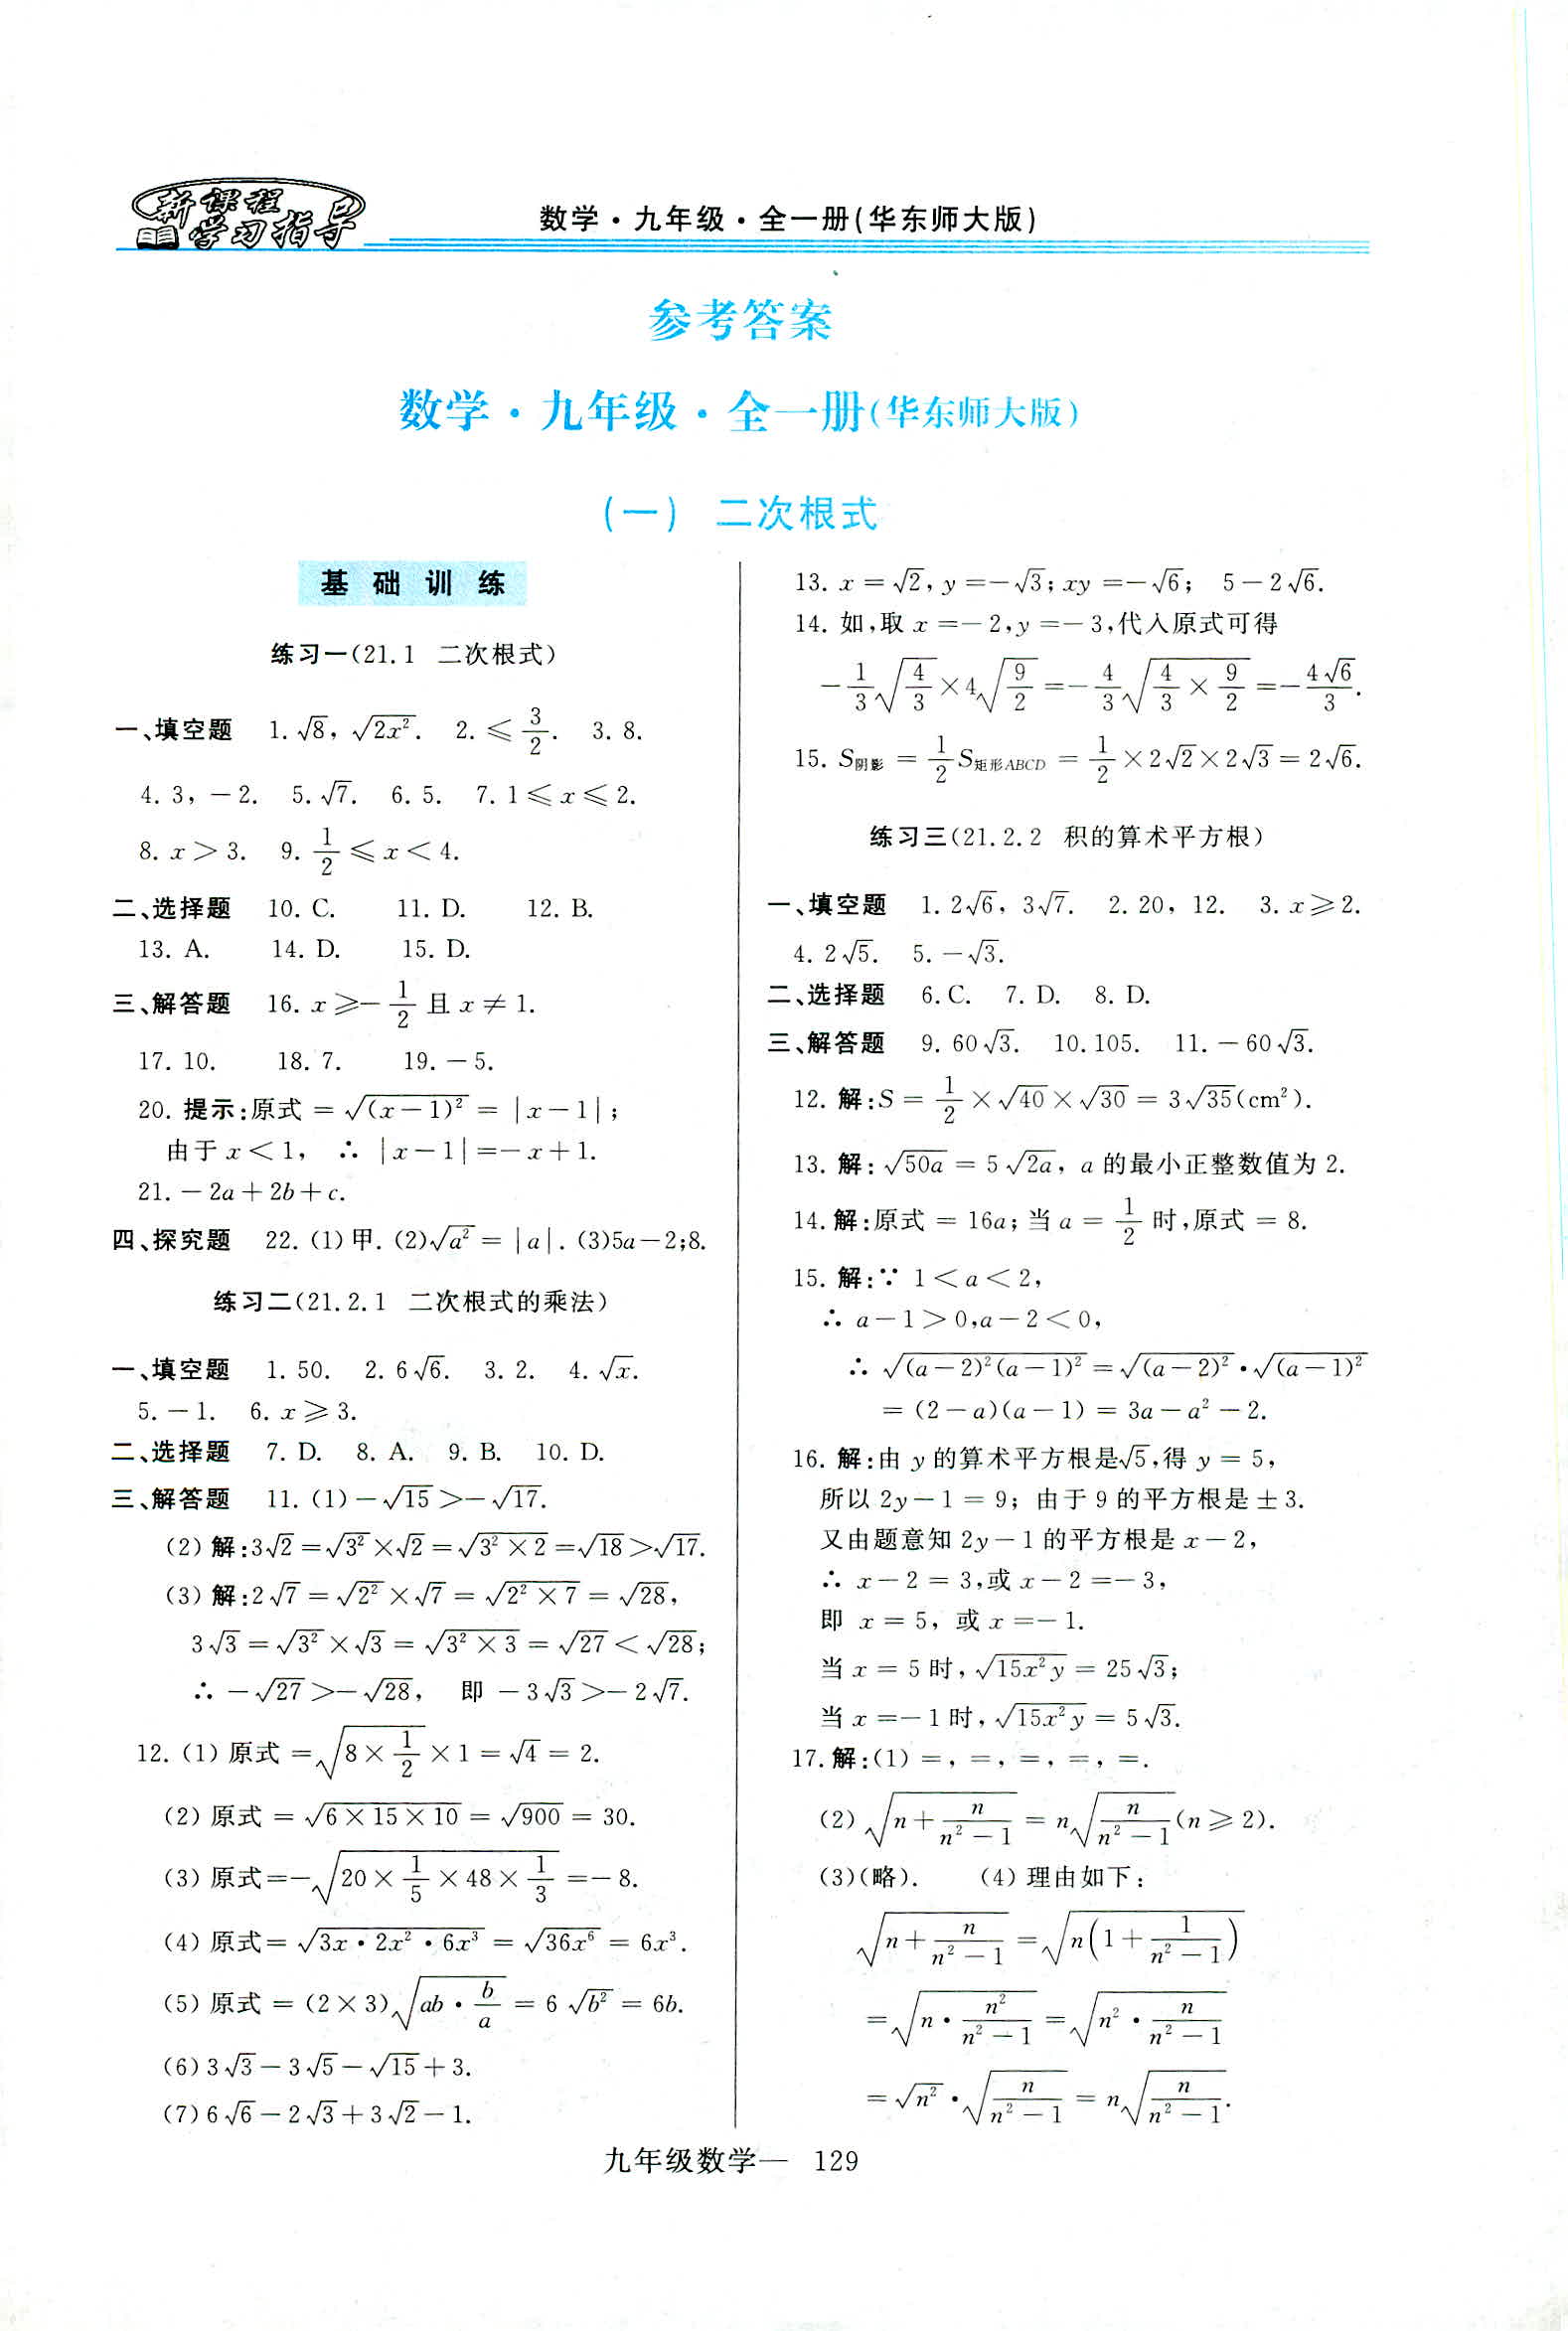 新课程
学习指导
数学·九年级·全一册(华东师大版)
参考答案
数学·九年级·全一册(华东师大版)
(一) 二次根式
基础训练
练习一(21.1 二次根式)
一、填空题 1. √8, √(2x²). 2. ≤ 3/2. 3. 8.
4. 3, -2. 5. √7. 6. 5. 7. 1≤x≤2.
8. x>3. 9. 1/2≤x<4.
二、选择题 10. C. 11. D. 12. B.
13. A. 14. D. 15. D.
三、解答题 16. x≥-1/2且x≠1.
17. 10. 18. 7. 19. -5.
20. 提示:原式 = √((x-1)²) = |x-1|;
由于x<1, ∴ |x-1|=-x+1.
21. -2a+2b+c.
四、探究题 22. (1)甲. (2)√(a²) = |a|. (3)5a-2;8.
练习二(21.2.1 二次根式的乘法)
一、填空题 1. 50. 2. 6√6. 3. 2. 4. √x.
5. -1. 6. x≥3.
二、选择题 7. D. 8. A. 9. B. 10. D.
三、解答题 11. (1)-√15>-√17.
(2)解:3√2=√(3²)×√2=√(3²×2)=√18>√17.
(3)解:2√7=√(2²)×√7=√(2²×7)=√28,
3√3=√(3²)×√3=√(3²×3)=√27<√28;
∴ -√27>-√28, 即 -3√3>-2√7.
12. (1)原式=√(8×1/2)×1=√4=2.
(2)原式=√(6×15×10)=√900=30.
(3)原式=-√(20×1/5×48×1/3)=-8.
(4)原式=√(3x·2x²·6x³)=√(36x⁶)=6x³.
(5)原式=(2×3)√(ab·b/a)=6√(b²)=6b.
(6)3√3-3√5-√15+3.
(7)6√6-2√3+3√2-1.
13. x=√2, y=-√3; xy=-√6; 5-2√6.
14. 如,取x=-2,y=-3,代入原式可得
-1/3√(4/3)×4√(9/2)=-4/3√(4/3×9/2)=-4√6/3.
15. S阴影=1/2S矩形ABCD=1/2×2√2×2√3=2√6.
练习三(21.2.2 积的算术平方根)
一、填空题 1. 2√6, 3√7. 2. 20, 12. 3. x≥2.
4. 2√5. 5. -√3.
二、选择题 6. C. 7. D. 8. D.
三、解答题 9. 60√3. 10. 105. 11. -60√3.
12. 解:S=1/2×√40×√30=3√35(cm²).
13. 解:√(50a)=5√(2a), a的最小正整数值为2.
14. 解:原式=16a;当a=1/2时,原式=8.
15. 解:∵ 1<a<2,
∴ a-1>0,a-2<0,
∴ √((a-2)²(a-1)²)=√((a-2)²)·√((a-1)²)
=(2-a)(a-1)=3a-a²-2.
16. 解:由y的算术平方根是√5,得y=5,
所以2y-1=9;由于9的平方根是±3.
又由题意知2y-1的平方根是x-2,
∴ x-2=3,或x-2=-3,
即 x=5, 或x=-1.
当x=5时,√(15x²y)=25√3;
当x=-1时,√(15x²y)=5√3.
17. 解:(1)=, =, =, =, =.
(2)√(n+n/(n²-1))=n√(n/(n²-1))(n≥2).
(3)(略). (4)理由如下:
√(n+n/(n²-1))=√(n(1+1/(n²-1)))
=√(n·n²/(n²-1))=√(n²·n/(n²-1))
=√(n²)·√(n/(n²-1))=n√(n/(n²-1)).
九年级数学— 129